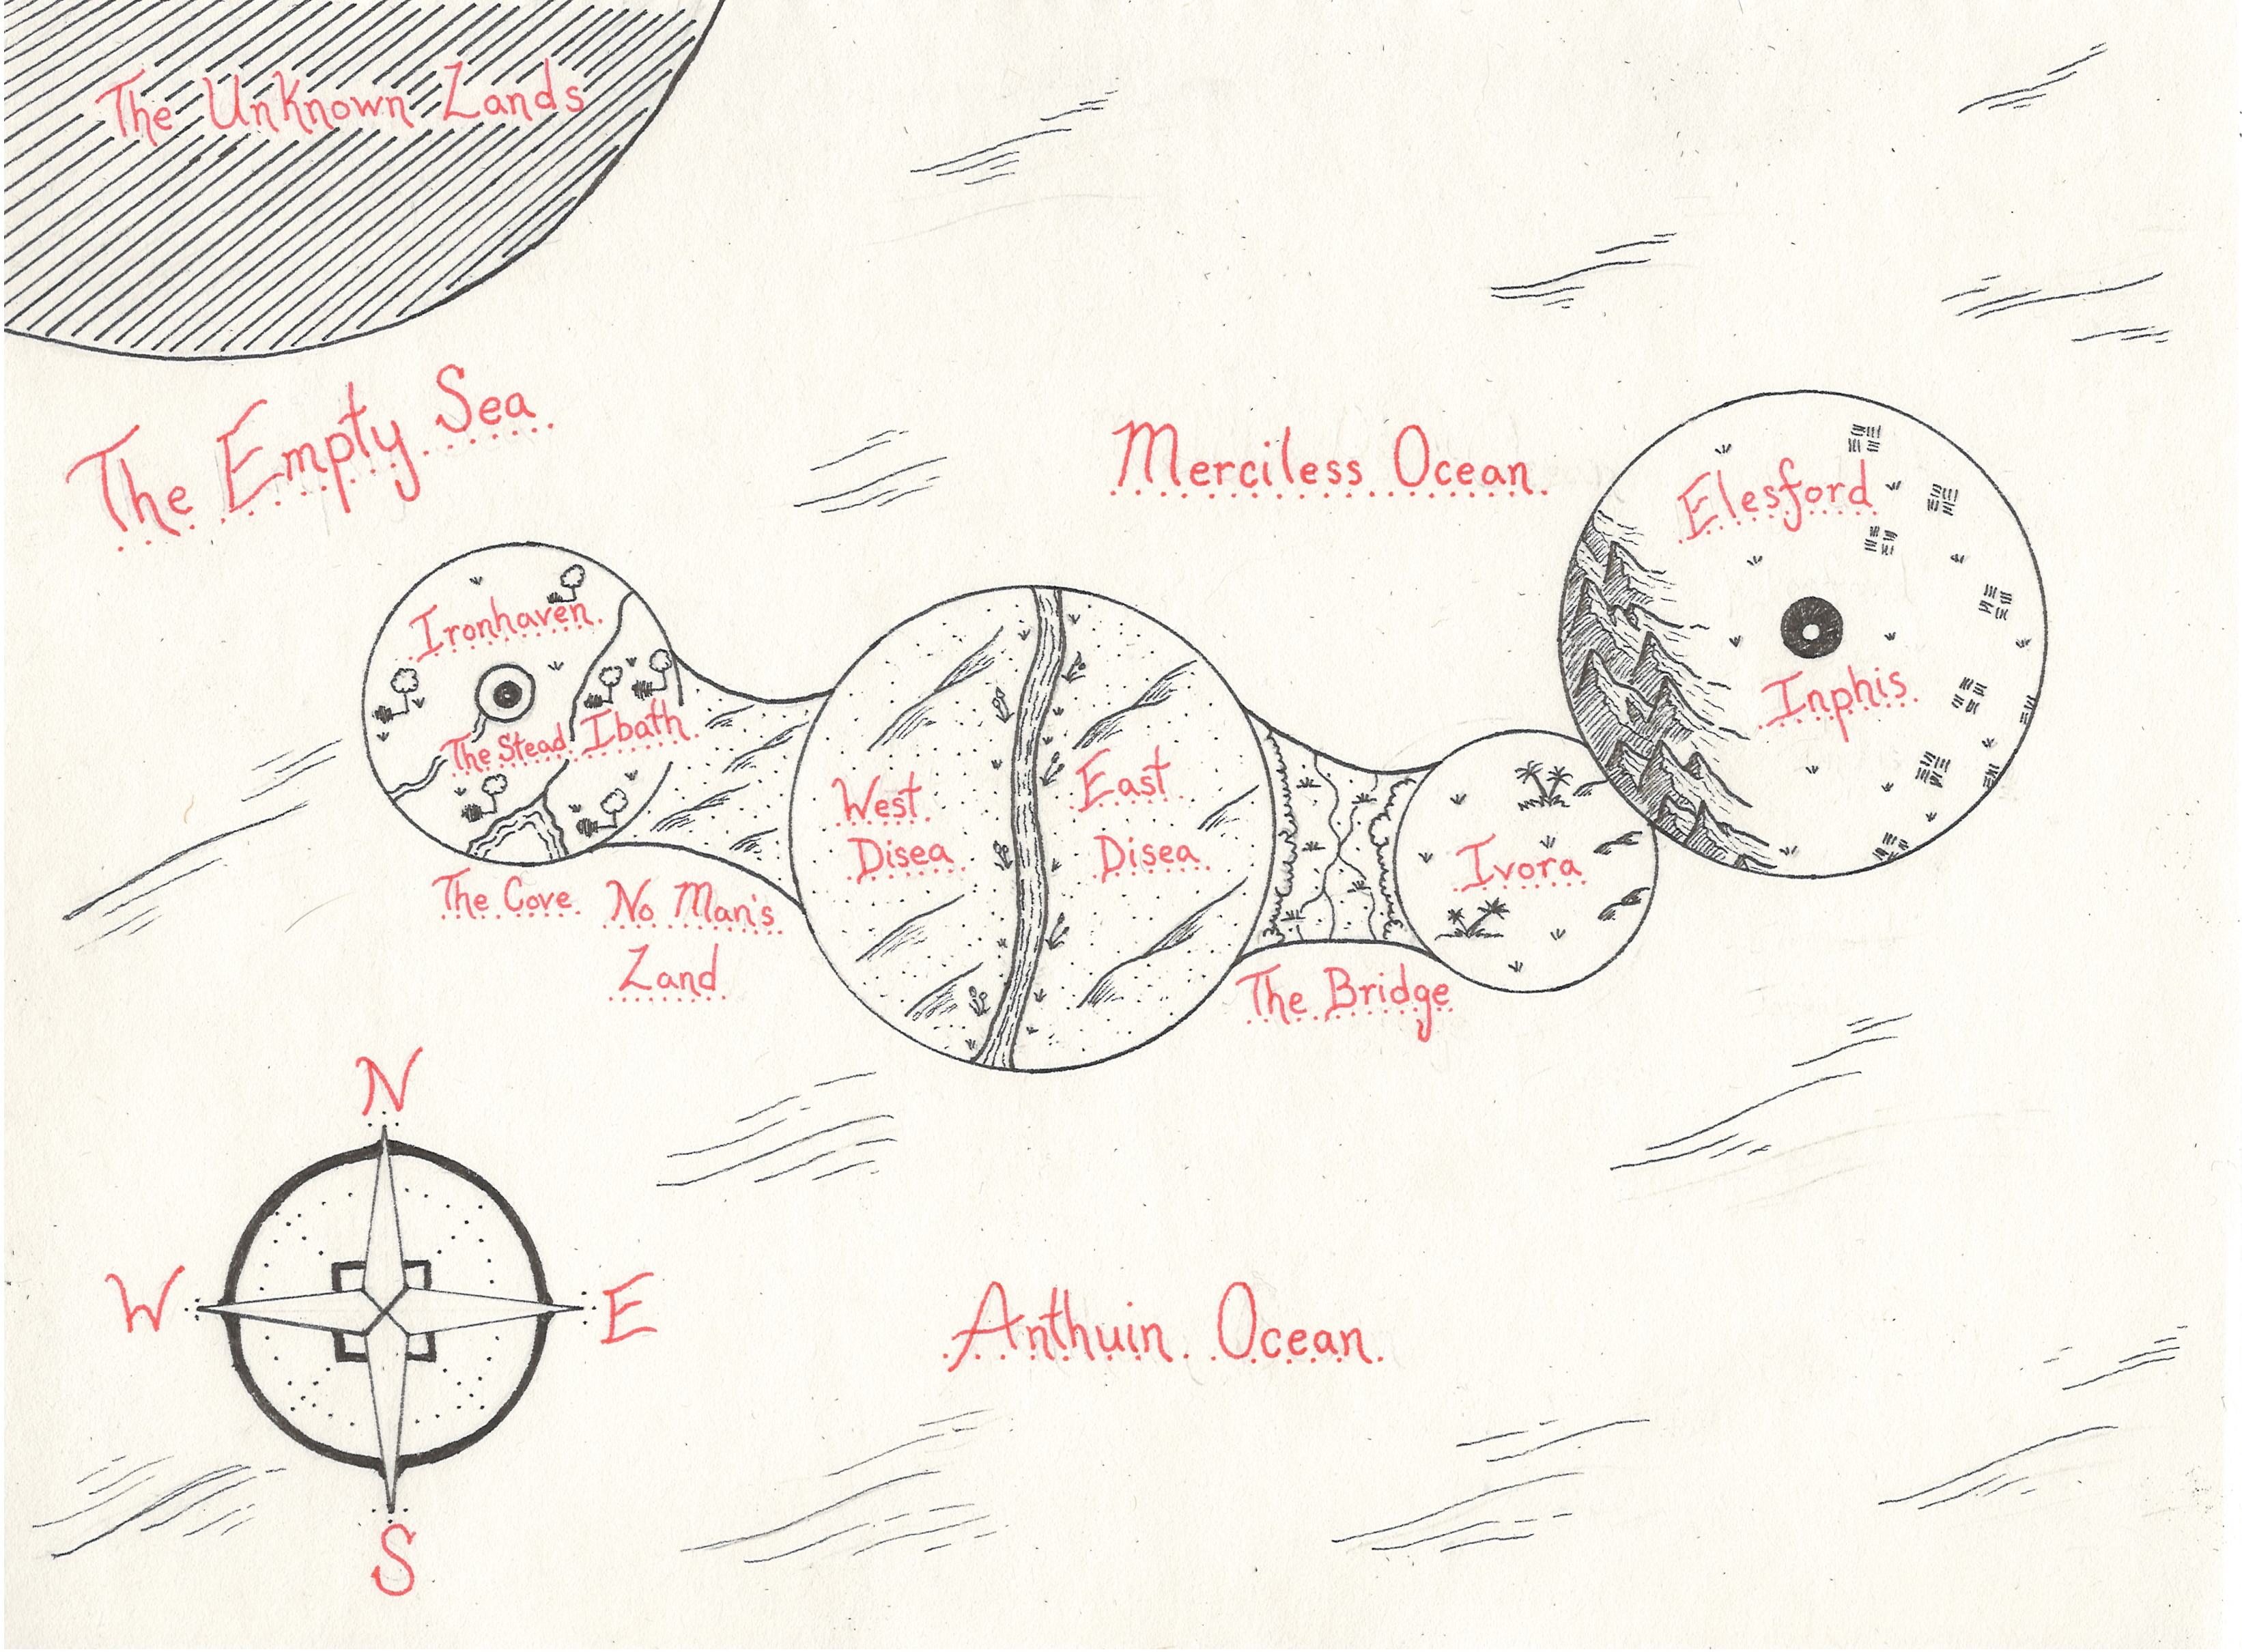 The Unknown Lands
The Empty Sea
Merciless Ocean
Elesford
Inphis
Ironhaven
The Stead
Ibath
West
Disea
East
Disea
Ivora
The Cove
No Man's
Land
The Bridge
N
W
E
S
Anthuin Ocean